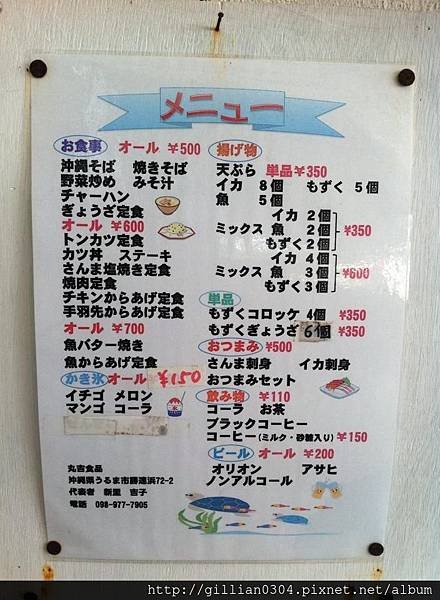 メニュー
お食事 オール ¥500
沖縄そば 焼きそば
野菜炒め みそ汁
チャーハン
ぎょうざ定食
オール ¥600
トンカツ定食
カツ丼 ステーキ
さんま塩焼き定食
焼肉定食
チキンからあげ定食
手羽先からあげ定食
オール ¥700
魚バター焼き
魚からあげ定食
かき氷 オール ¥150
イチゴ メロン
マンゴ コーラ
揚げ物
天ぷら 単品 ¥350
イカ 8個 もずく 5個
魚 5個
イカ 2個
ミックス 魚 2個 ¥350
もずく 2個
イカ 4個
ミックス 魚 3個 ¥600
もずく 3個
単品
もずくコロッケ 4個 ¥350
もずくぎょうざ 6個 ¥350
おつまみ ¥500
さんま刺身 イカ刺身
おつまみセット
飲み物 ¥110
コーラ お茶
ブラックコーヒー
コーヒー(ミルク・砂糖入り) ¥150
ビール オール ¥200
オリオン アサヒ
ノンアルコール
丸吉食品
沖縄県うるま市勝連浜72-2
代表者 新里 吉子
電話 098-977-7905
http://gillian0304.pixnet.net/album